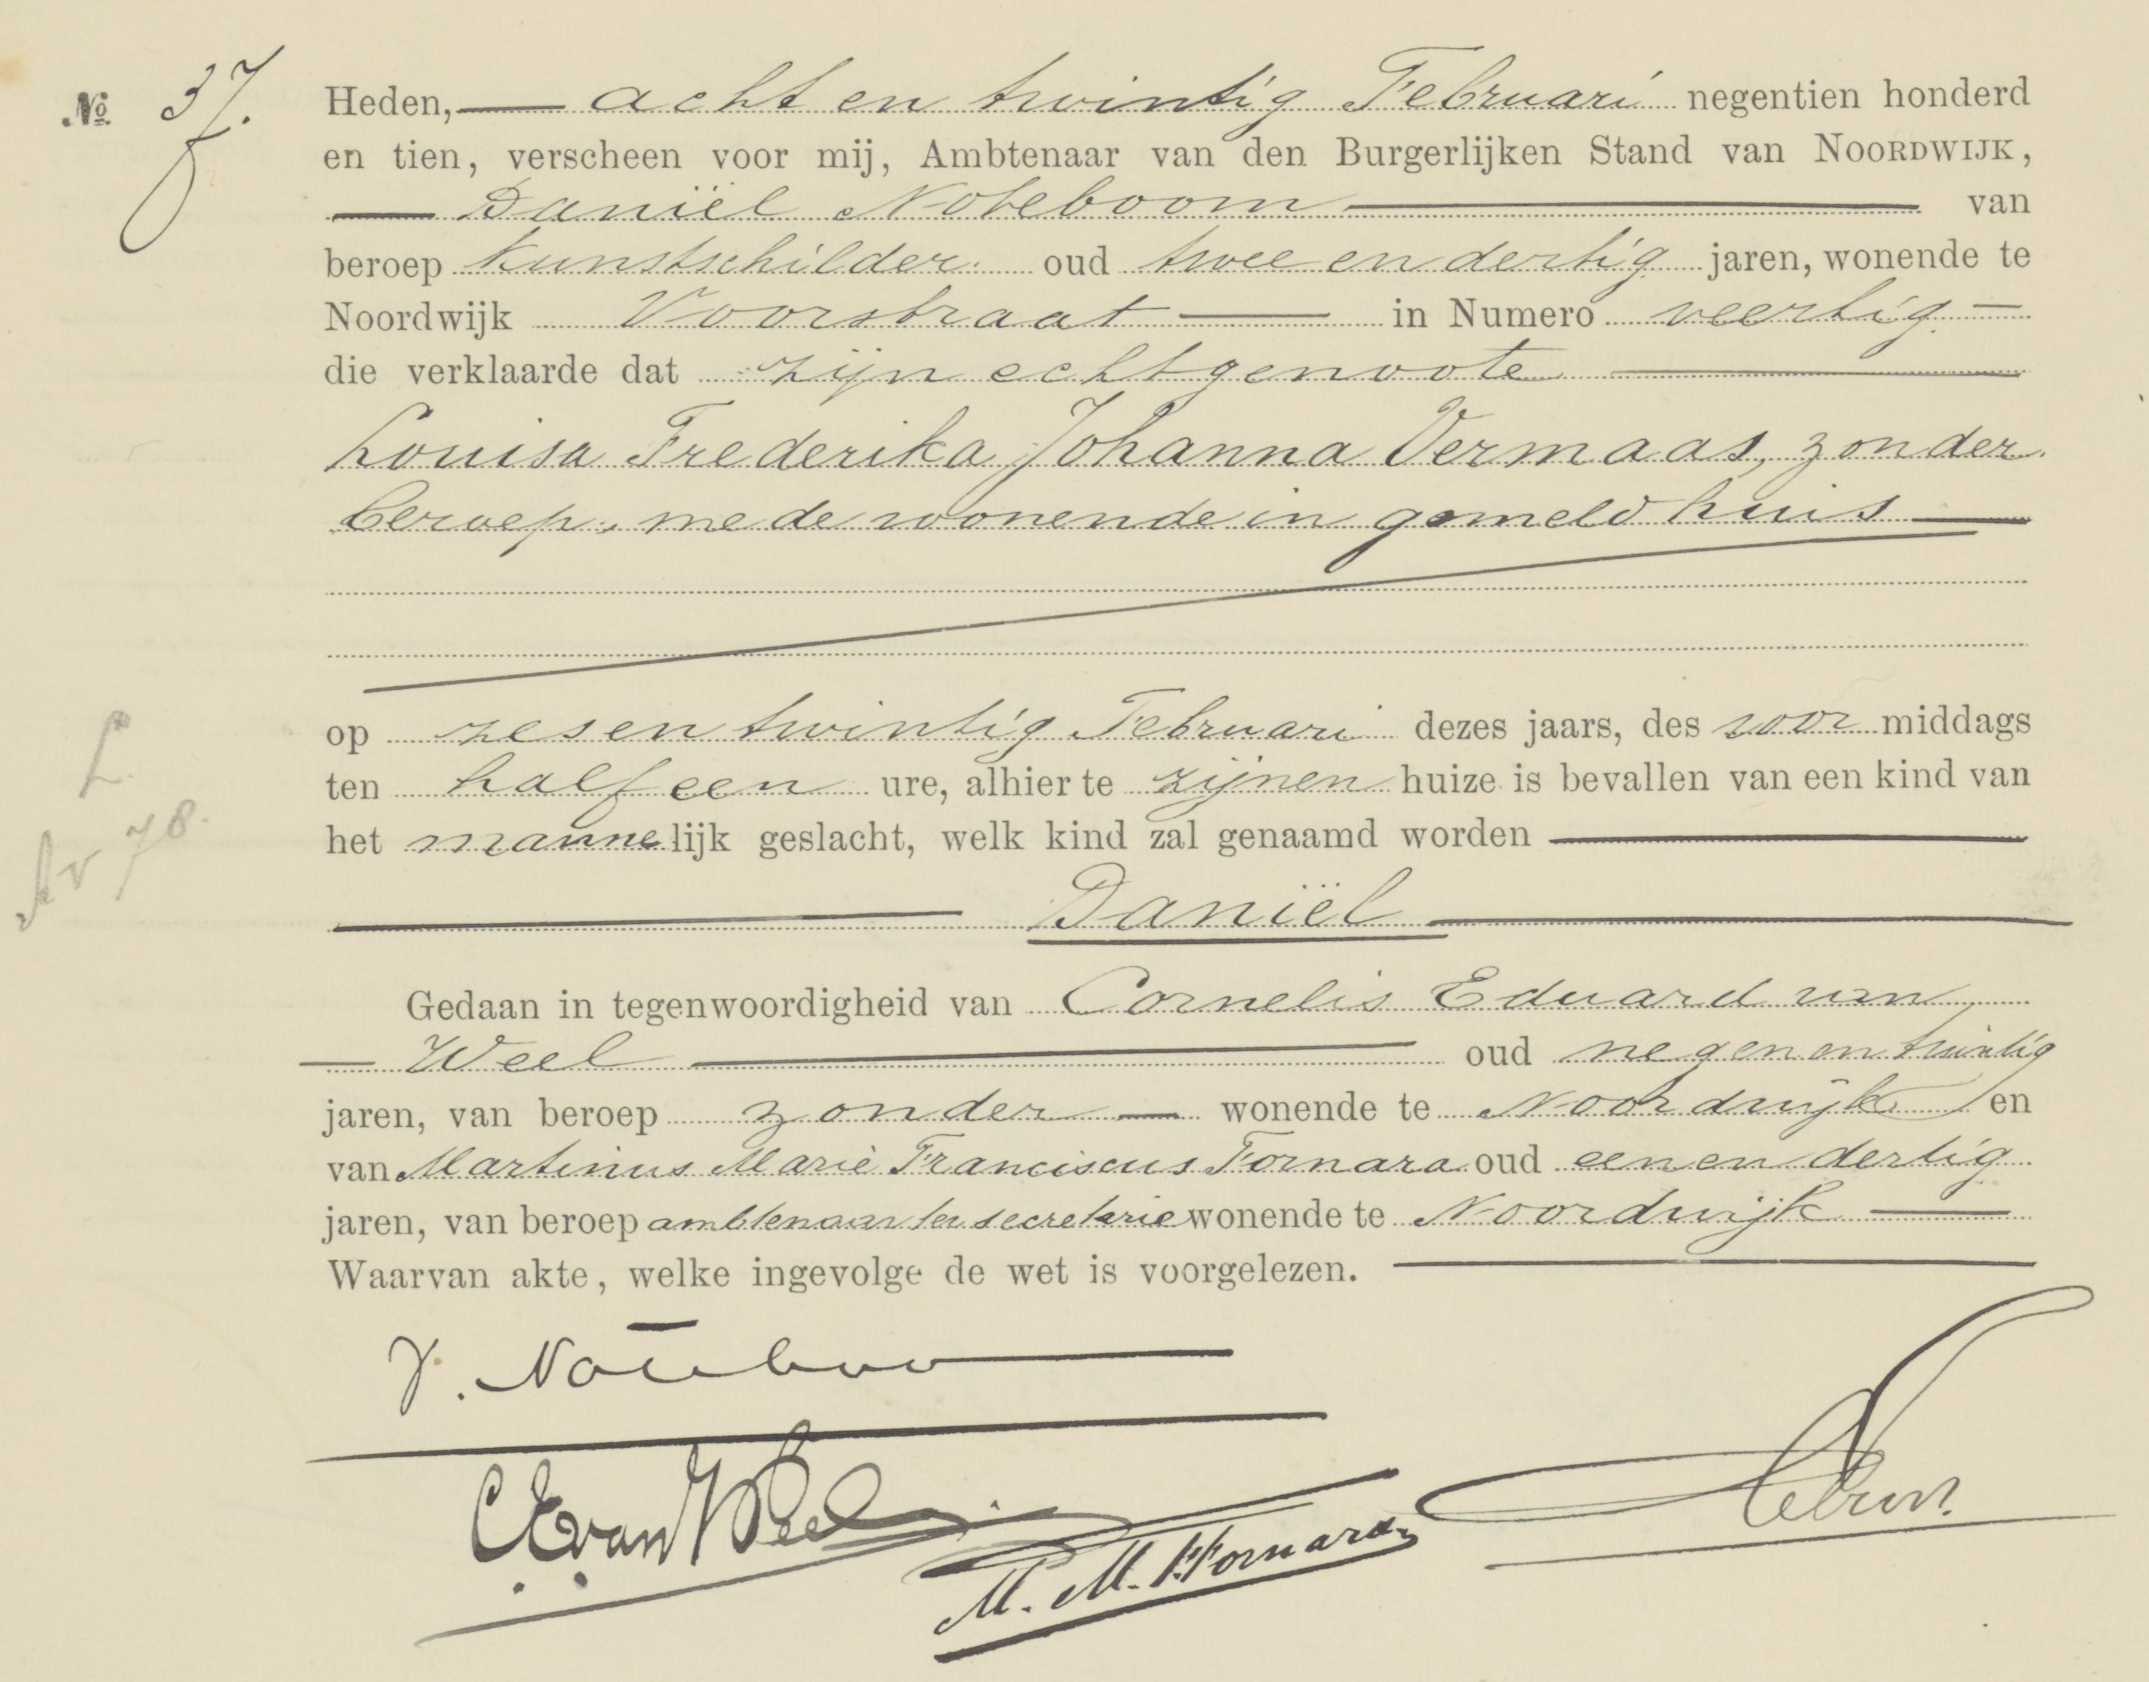 No 37.
Heden, acht en twintig Februari negentien honderd
en tien, verscheen voor mij, Ambtenaar van den Burgerlijken Stand van NOORDWIJK,
Daniël Noteboom van
beroep kunstschilder oud twee en dertig jaren, wonende te
Noordwijk Voorstraat in Numero veertig
die verklaarde dat zijn echtgenoote
Louisa Frederika Johanna Vermaas, zonder
beroep, mede wonende in gemeld huis
op zes en twintig Februari dezes jaars, des voor middags
ten half een ure, alhier te zijnen huize is bevallen van een kind van
het mannelijk geslacht, welk kind zal genaamd worden
Daniël
Gedaan in tegenwoordigheid van Cornelis Eduard van
Weel oud negen en twintig
jaren, van beroep zonder wonende te Noordwijk en
van Martinus Marie Franciscus Fornara oud een en dertig
jaren, van beroep ambtenaar ter secretarie wonende te Noordwijk
Waarvan akte, welke ingevolge de wet is voorgelezen.
D. Noteboom
C E van Weel
M. M. F. Fornara